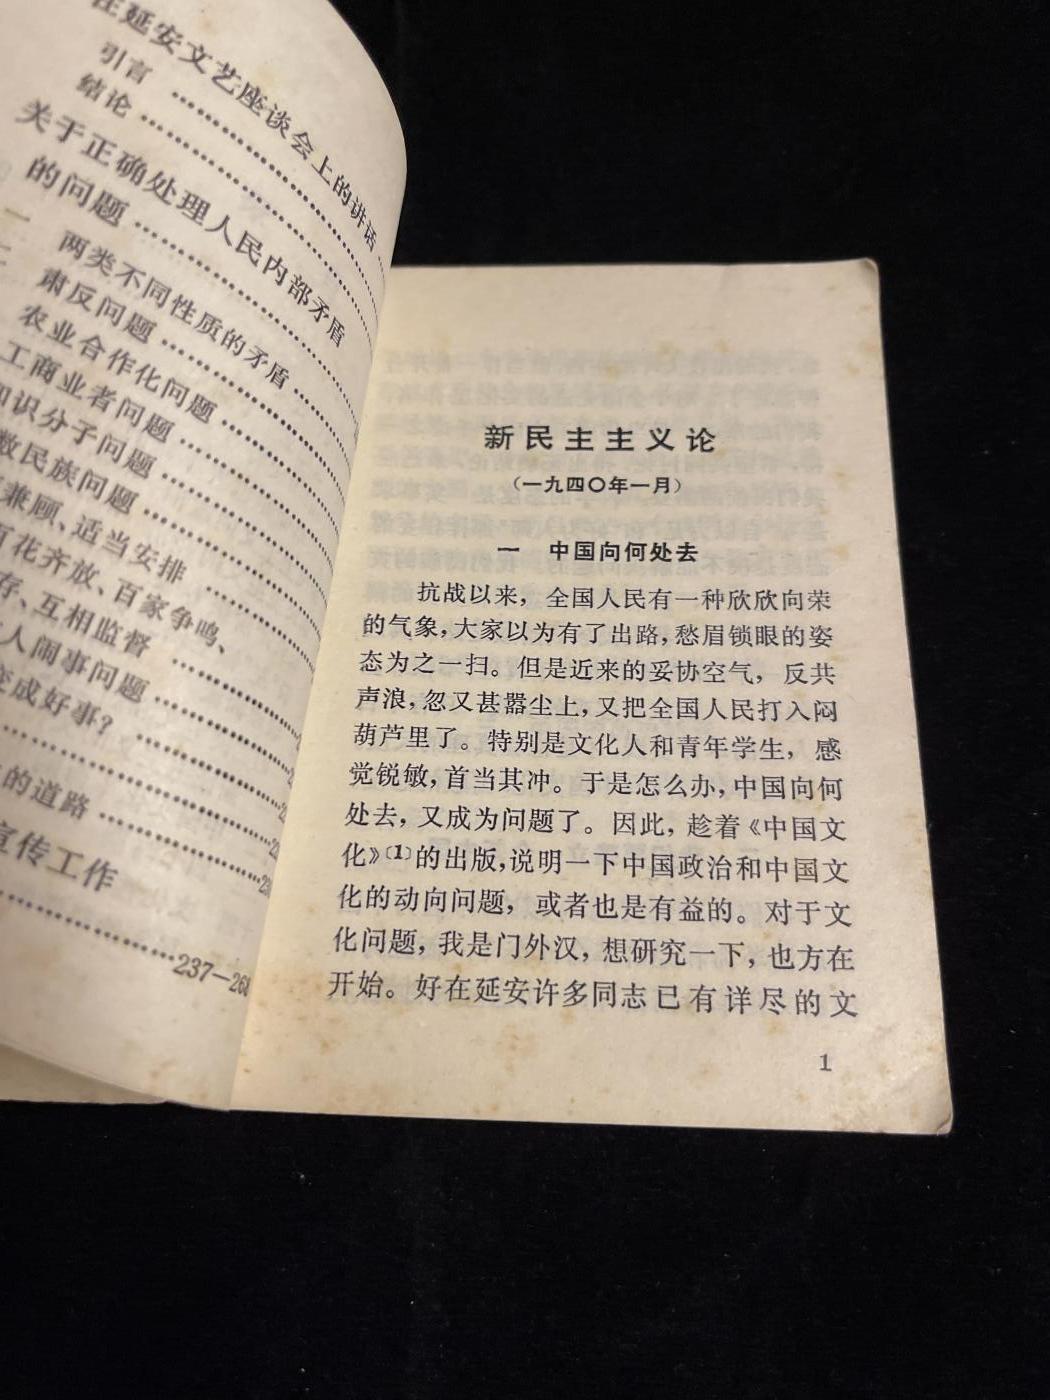 在延安文艺座谈会上的讲话
引言
结论
关于正确处理人民内部矛盾
的问题
一 两类不同性质的矛盾
肃反问题
农业合作化问题
工商业者问题
知识分子问题
数民族问题
兼顾、适当安排
百花齐放、百家争鸣、
存、互相监督
人闹事问题
变成好事?
的道路
宣传工作
237—26
新民主主义论
(一九四〇年一月)
一 中国向何处去
抗战以来,全国人民有一种欣欣向荣
的气象,大家以为有了出路,愁眉锁眼的姿
态为之一扫。但是近来的妥协空气,反共
声浪,忽又甚嚣尘上,又把全国人民打入闷
葫芦里了。特别是文化人和青年学生,感
觉锐敏,首当其冲。于是怎么办,中国向何
处去,又成为问题了。因此,趁着《中国文
化》〔1〕的出版,说明一下中国政治和中国文
化的动向问题,或者也是有益的。对于文
化问题,我是门外汉,想研究一下,也方在
开始。好在延安许多同志已有详尽的文
1